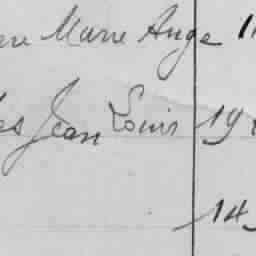 Marie Ange 1
Jean Louis 19
14